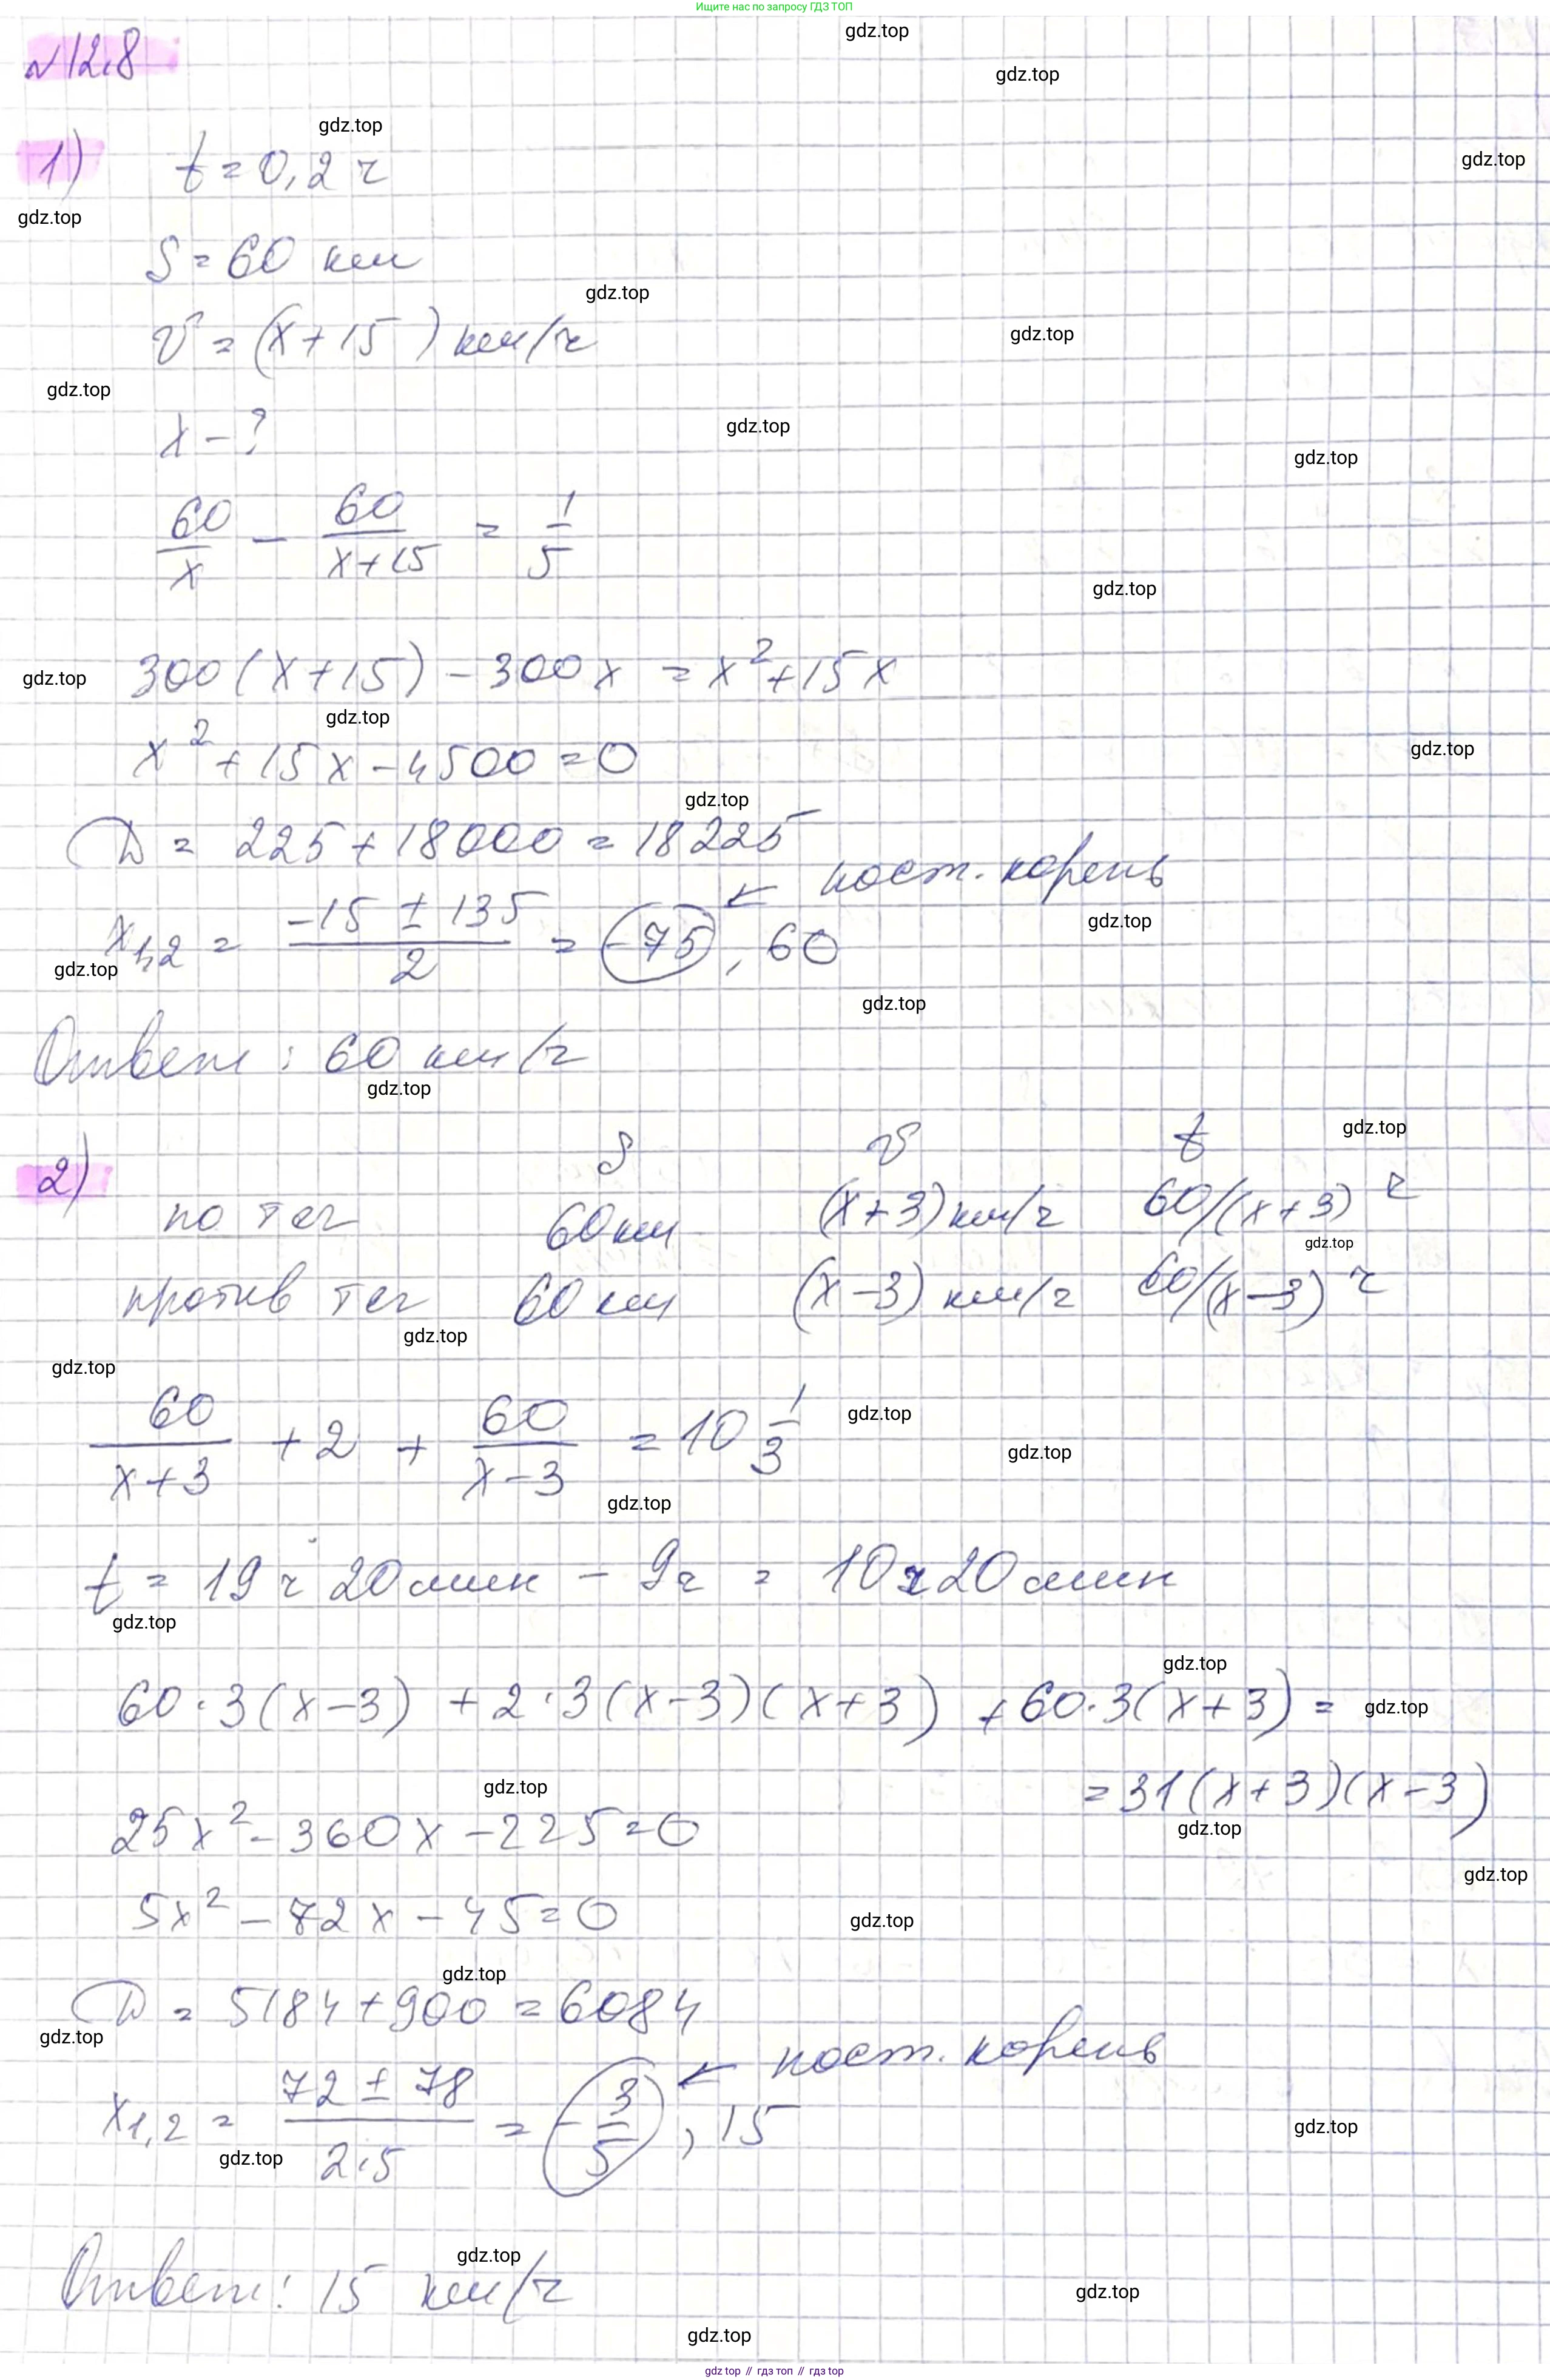 Ищите нас по запросу ГДЗ ТОП
gdz.top
№12.8
gdz.top
gdz.top
1) t = 0,2 ч
gdz.top
gdz.top
S = 60 км
gdz.top
v = (x+15) км/ч
gdz.top
gdz.top
x - ?
gdz.top
gdz.top
60/x - 60/(x+15) = 1/5
gdz.top
300(x+15) - 300x = x² + 15x
gdz.top
gdz.top
x² + 15x - 4500 = 0
gdz.top
gdz.top
D = 225 + 18000 = 18225
x₁,₂ = (-15 ± 135)/2 = -75, 60 ← пост. корень
gdz.top
gdz.top
gdz.top
Ответ: 60 км/ч
gdz.top
2) S v t
gdz.top
по теч 60 км (x+3) км/ч 60/(x+3) ч
gdz.top
против теч 60 км (x-3) км/ч 60/(x-3) ч
gdz.top
gdz.top
60/(x+3) + 2 + 60/(x-3) = 10 1/3
gdz.top
gdz.top
gdz.top
t = 19 ч 20 мин - 9 ч = 10 ч 20 мин
gdz.top
gdz.top
60·3(x-3) + 2·3(x-3)(x+3) + 60·3(x+3) =
gdz.top
= 31(x+3)(x-3)
gdz.top
25x² - 360x - 225 = 0
gdz.top
gdz.top
5x² - 72x - 45 = 0
gdz.top
gdz.top
D = 5184 + 900 = 6084
gdz.top
x₁,₂ = (72 ± 78)/(2·5) = -3/5, 15 ← пост. корень
gdz.top
gdz.top
gdz.top
Ответ: 15 км/ч
gdz.top
gdz.top
gdz.top // гдз топ // gdz.top